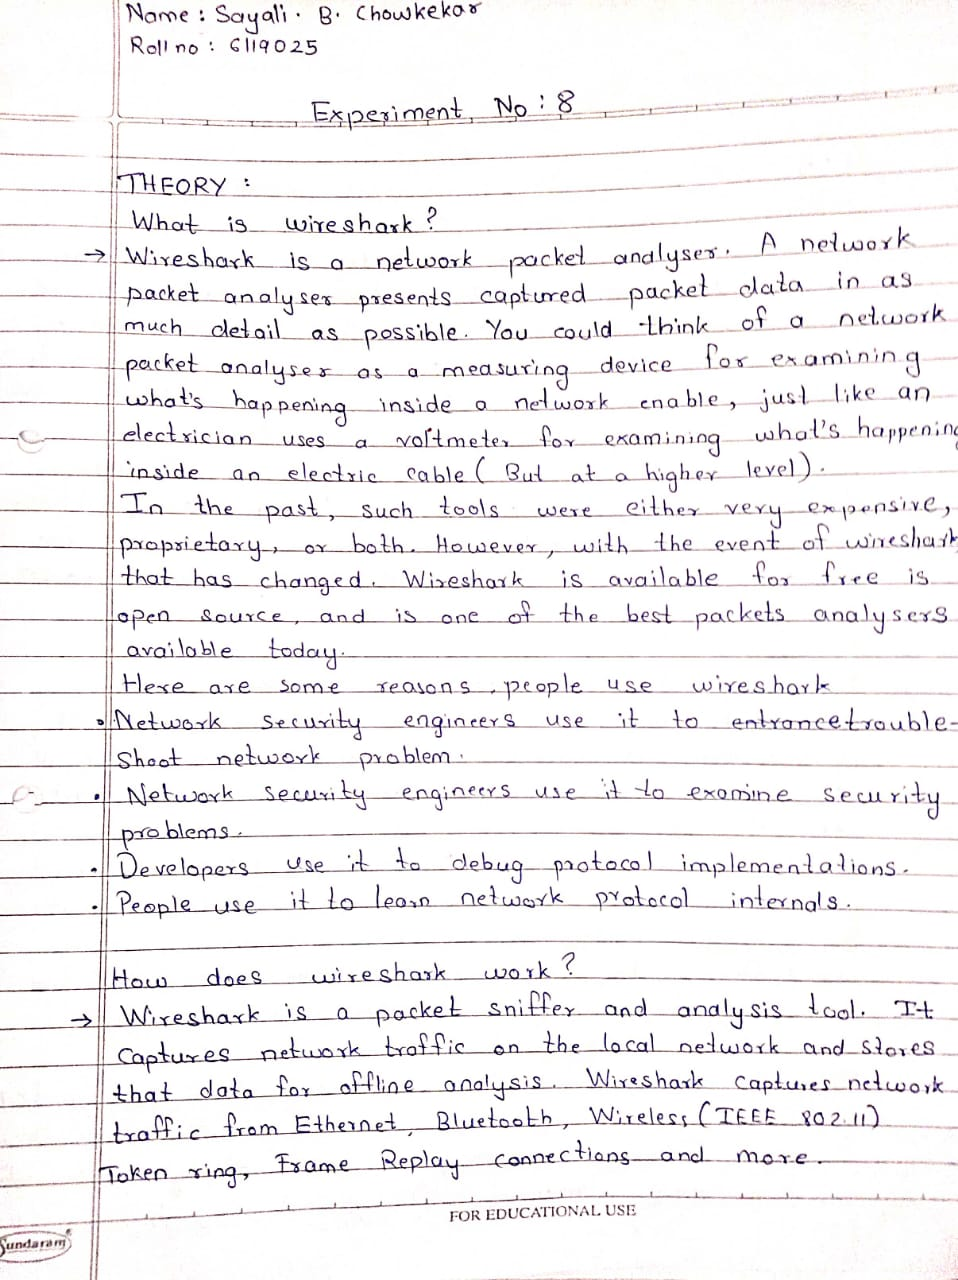 Name : Sayali . B. Chowkekar
Roll no : 6119025
Experiment No : 8
THEORY :
What is wireshark ?
→ Wireshark is a network packet analyser. A network
packet analyser presents captured packet data in as
much detail as possible. You could think of a network
packet analyser as a measuring device for examining
what's happening inside a network enable, just like an
electrician uses a voltmeter for examining what's happening
inside an electric cable ( But at a higher level).
In the past, such tools were either very expensive,
proprietary, or both. However, with the event of wireshark
that has changed. Wireshark is available for free is
open source, and is one of the best packets analysers
available today.
Here are some reasons, people use wireshark
• Network security engineers use it to entrancetrouble-
shoot network problem.
• Network security engineers use it to examine security
problems.
• Developers use it to debug protocol implementations.
• People use it to learn network protocol internals.
How does wireshark work ?
→ Wireshark is a packet sniffer and analysis tool. It
captures network traffic on the local network and stores
that data for offline analysis. Wireshark captures network
traffic from Ethernet, Bluetooth, Wireless (IEEE 802.11)
Token ring, Frame Replay connections and more.
FOR EDUCATIONAL USE
Sundaram